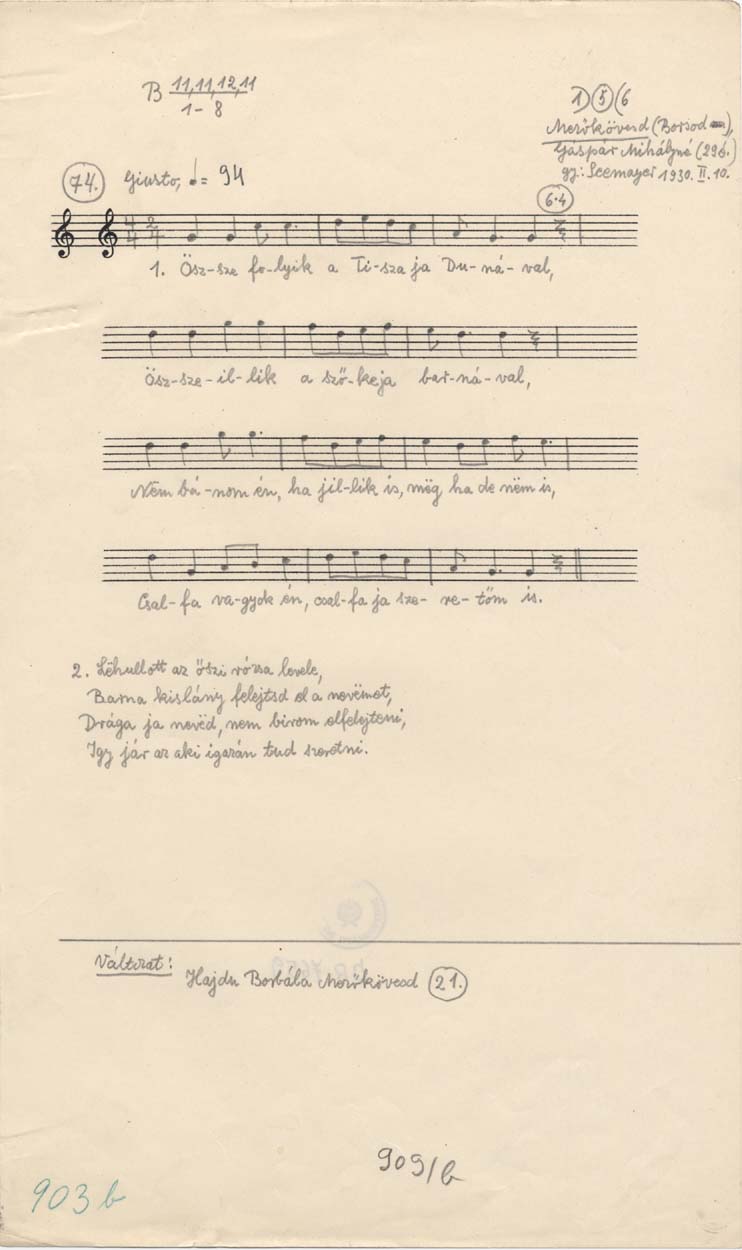 B 11,11,12,11
1- 8
1) 5 (6
Mezőkövesd (Borsod),
Gáspár Mihályné (29é.)
gy: Seemayer 1930. II. 10.
74. Giusto, ♩= 94
6·4
4/4 2/4
1. Ösz-sze fo-lyik a Ti-sza ja Du-ná-val,
Ösz-sze-il-lik a sző-keja bar-ná-val,
Nëm bá-nom én, ha jil-lik is, mëg ha de nëm is,
Csal-fa va-gyok én, csal-fa ja sze-re-tőm is.
2. Lëhullott az őszi rózsa levele,
Barna kislány felejtsd el a nevëmet,
Drága ja nevëd, nem birom elfelejteni,
Igy jár az aki igazán tud szeretni.
Változat:
Hajdu Borbála Mezőkövesd 21.
909/b
903 b